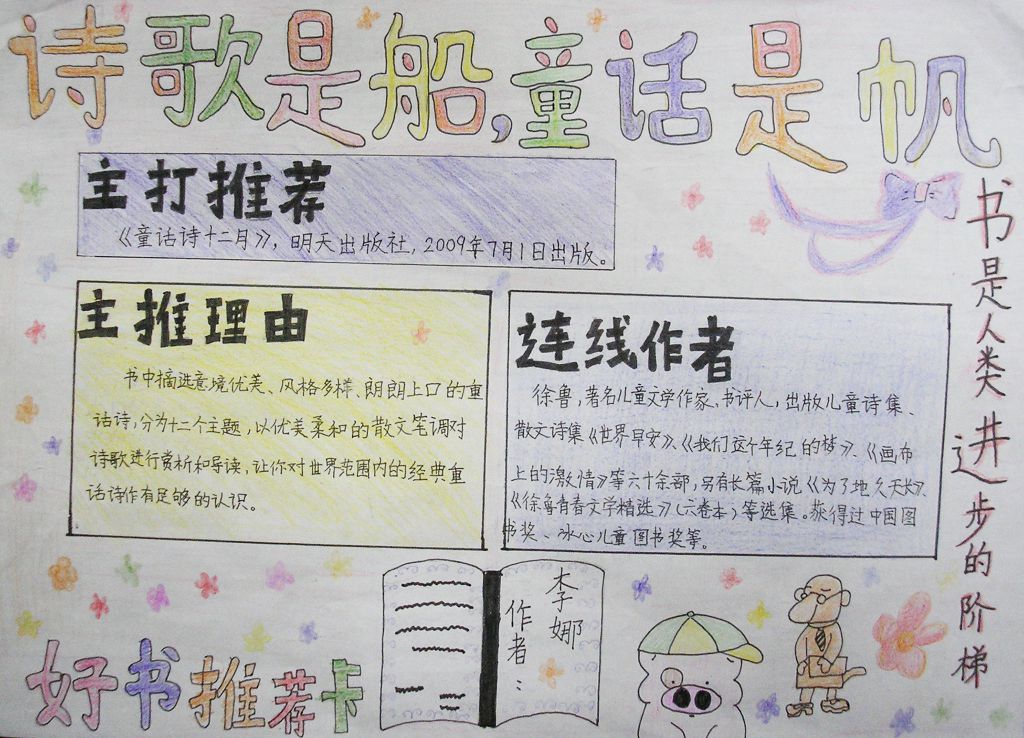 诗歌是船,童话是帆
主打推荐
《童话诗十二月》，明天出版社，2009年7月1日出版。
主推理由
书中摘选意境优美、风格多样、朗朗上口的童
话诗，分为十二个主题，以优美柔和的散文笔调对
诗歌进行赏析和导读，让你对世界范围内的经典童
话诗作有足够的认识。
连线作者
徐鲁，著名儿童文学作家、书评人，出版儿童诗集、
散文诗集《世界早安》、《我们这个年纪的梦》、《画布
上的激情》等六十余部，另有长篇小说《为了地久天长》、
《徐鲁青春文学精选》（六卷本）等选集。获得过中国图
书奖、冰心儿童图书奖等。
书是人类进步的阶梯
好书推荐卡
作者：
李娜